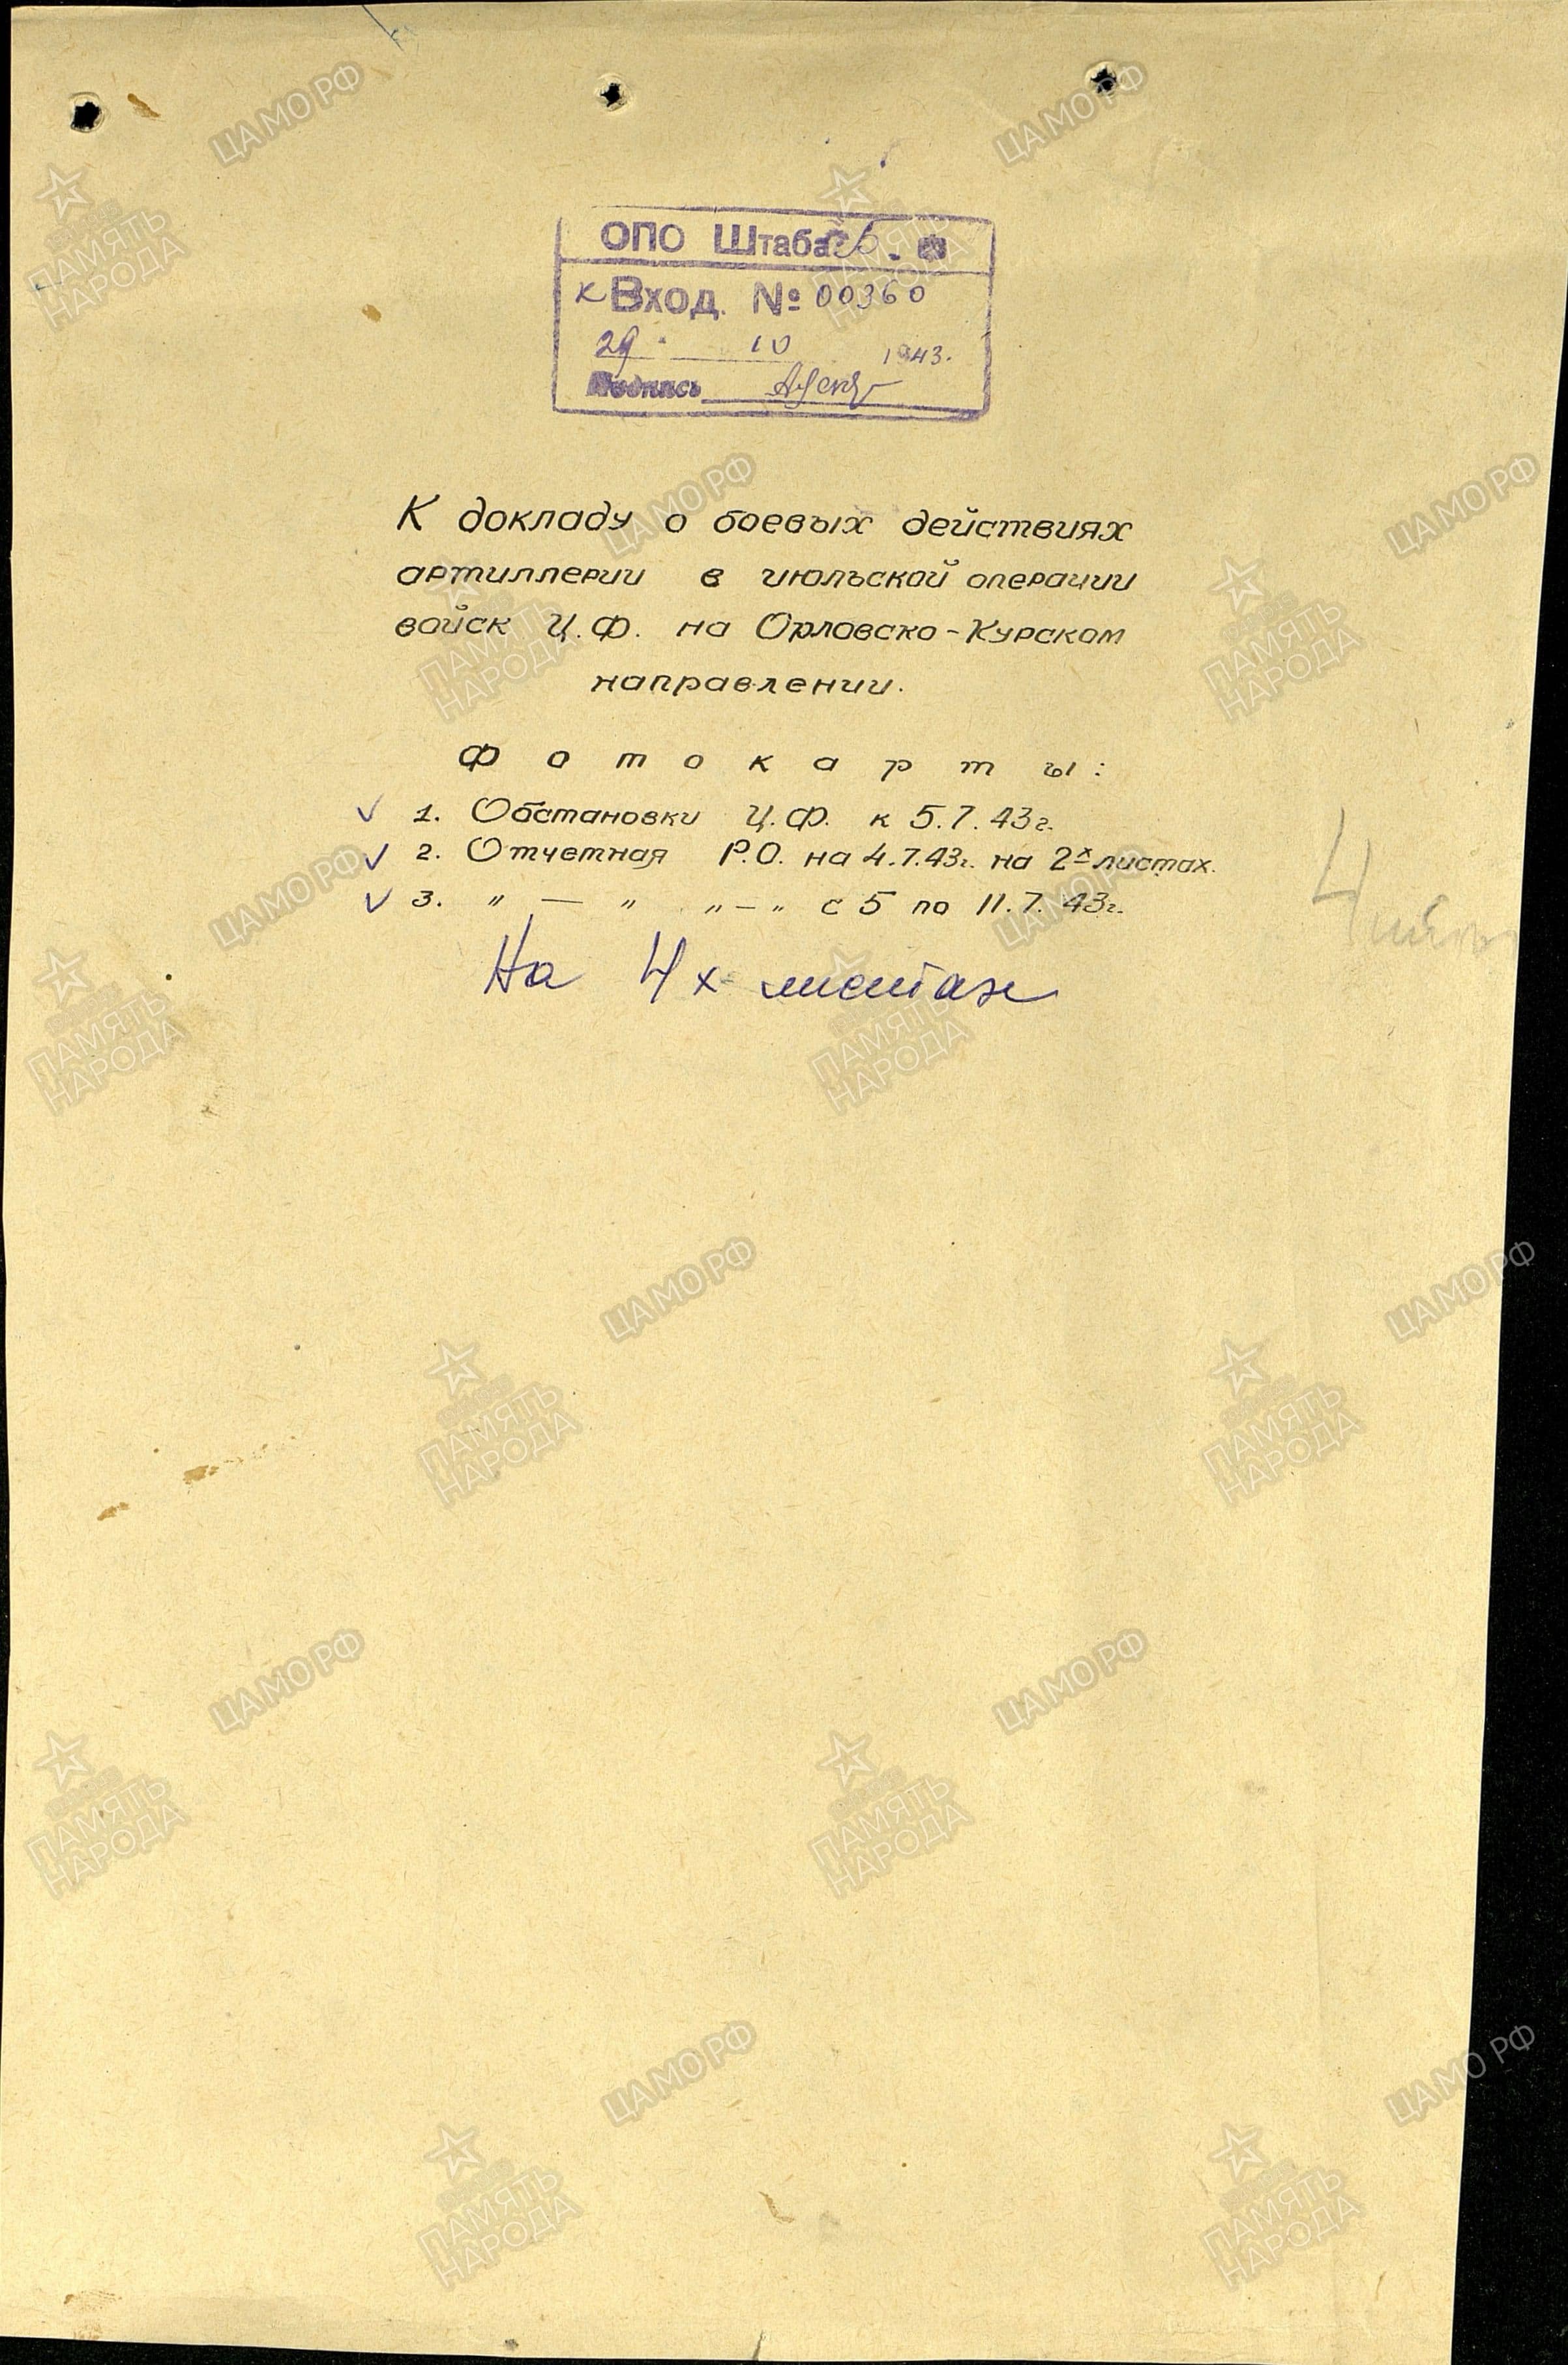 ОПО Штаба Б. Ф
к Вход. № 00360
29 10 1943.
Подпись
К докладу о боевых действиях
артиллерии в июльской операции
войск Ц.Ф. на Орловско-Курском
направлении.
Фотокарты:
✓ 1. Обстановки Ц.Ф. к 5.7.43г.
✓ 2. Отчетная Р.О. на 4.7.43г. на 2х листах.
✓ 3. " — " " — " с 5 по 11.7.43г.
На 4х листах
4
ЦАМО РФ
ПАМЯТЬ
НАРОДА